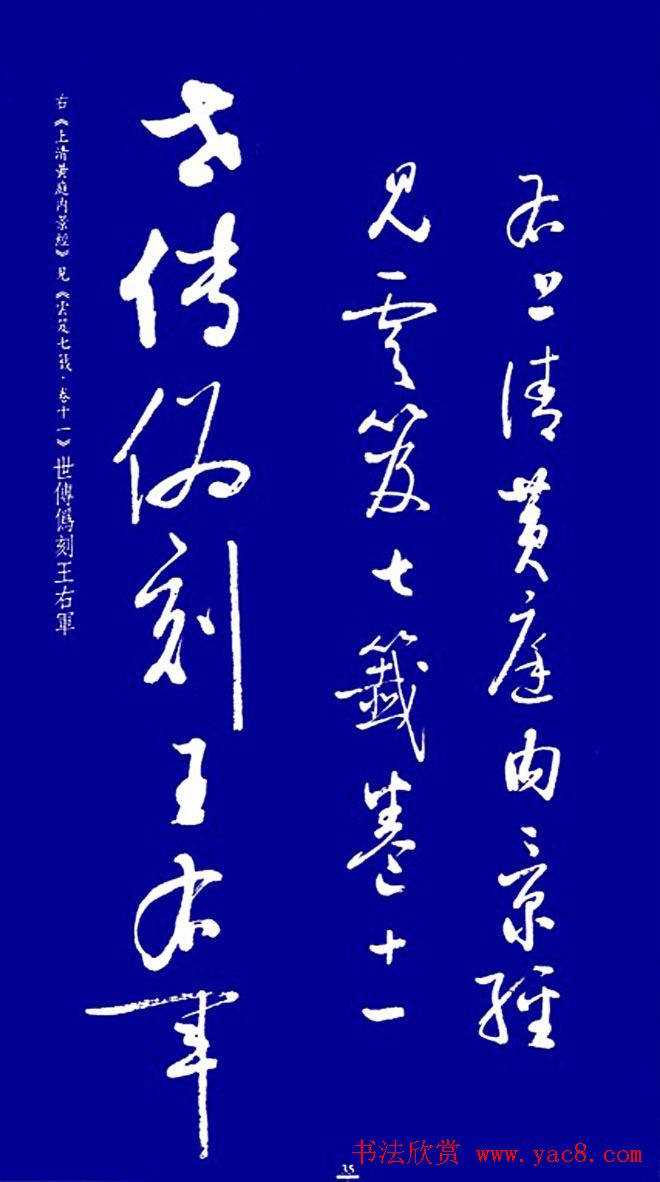 右上清黄庭内景經
見雲笈七籤卷十一
世傳偽刻王右軍
右《上清黄庭内景經》見《雲笈七籤·卷十一》世傳僞刻王右軍
35
书法欣赏 www.yac8.com